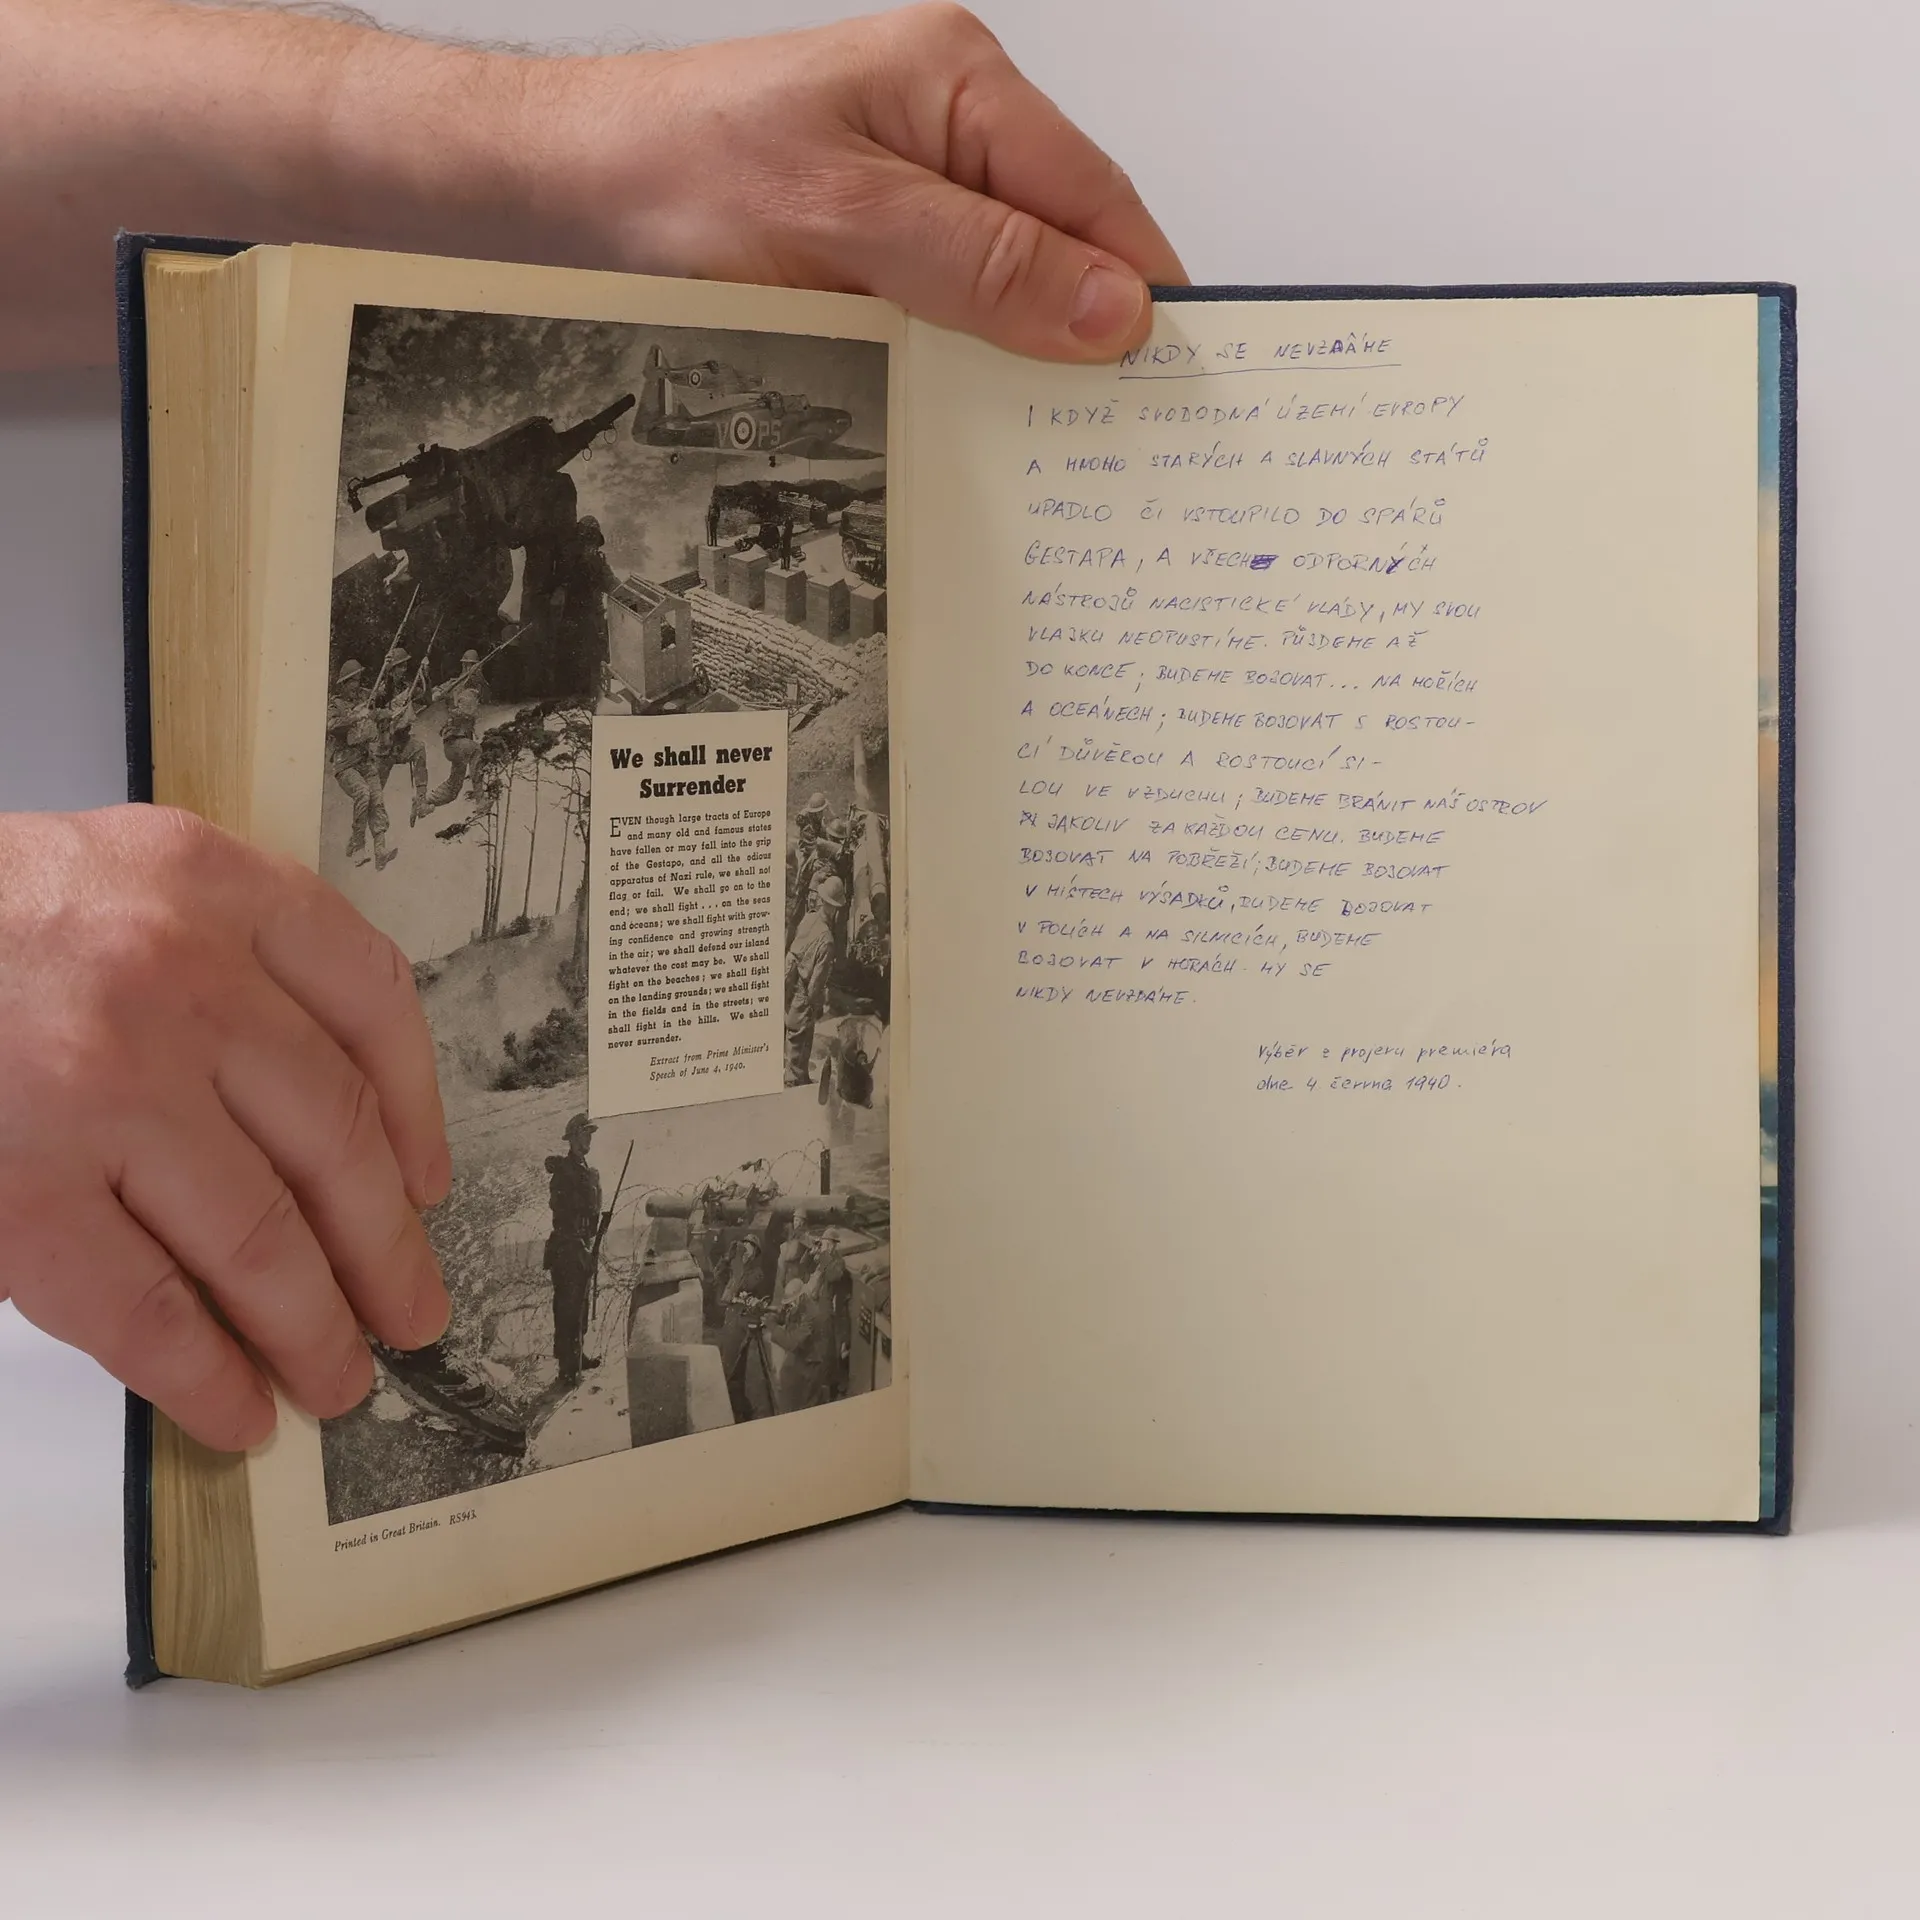 VPS
We shall never
Surrender
EVEN though large tracts of Europe
and many old and famous states
have fallen or may fall into the grip
of the Gestapo, and all the odious
apparatus of Nazi rule, we shall not
flag or fail. We shall go on to the
end; we shall fight . . . on the seas
and oceans; we shall fight with grow-
ing confidence and growing strength
in the air; we shall defend our island
whatever the cost may be. We shall
fight on the beaches; we shall fight
on the landing grounds; we shall fight
in the fields and in the streets; we
shall fight in the hills. We shall
never surrender.
Extract from Prime Minister's
Speech of June 4, 1940.
Printed in Great Britain. RS943.
NIKDY SE NEVZDÁME
I KDYŽ SVOBODNÁ ÚZEMÍ EVROPY
A MNOHO STARÝCH A SLAVNÝCH STÁTŮ
UPADLO ČI VSTOUPILO DO SPÁRŮ
GESTAPA, A VŠECH ODPORNÝCH
NÁSTROJŮ NACISTICKÉ VLÁDY, MY SVOU
VLAJKU NEOPUSTÍME. PŮJDEME AŽ
DO KONCE; BUDEME BOJOVAT... NA MOŘÍCH
A OCEÁNECH; BUDEME BOJOVAT S ROSTOU-
CÍ DŮVĚROU A ROSTOUCÍ SI-
LOU VE VZDUCHU; BUDEME BRÁNIT NÁŠ OSTROV
JAKOLIV ZA KAŽDOU CENU. BUDEME
BOJOVAT NA POBŘEŽÍ; BUDEME BOJOVAT
V MÍSTECH VÝSADKŮ, BUDEME BOJOVAT
V POLÍCH A NA SILNICÍCH, BUDEME
BOJOVAT V HORÁCH. MY SE
NIKDY NEVZDÁME.
Výběr z projevu premiéra
dne 4 června 1940.